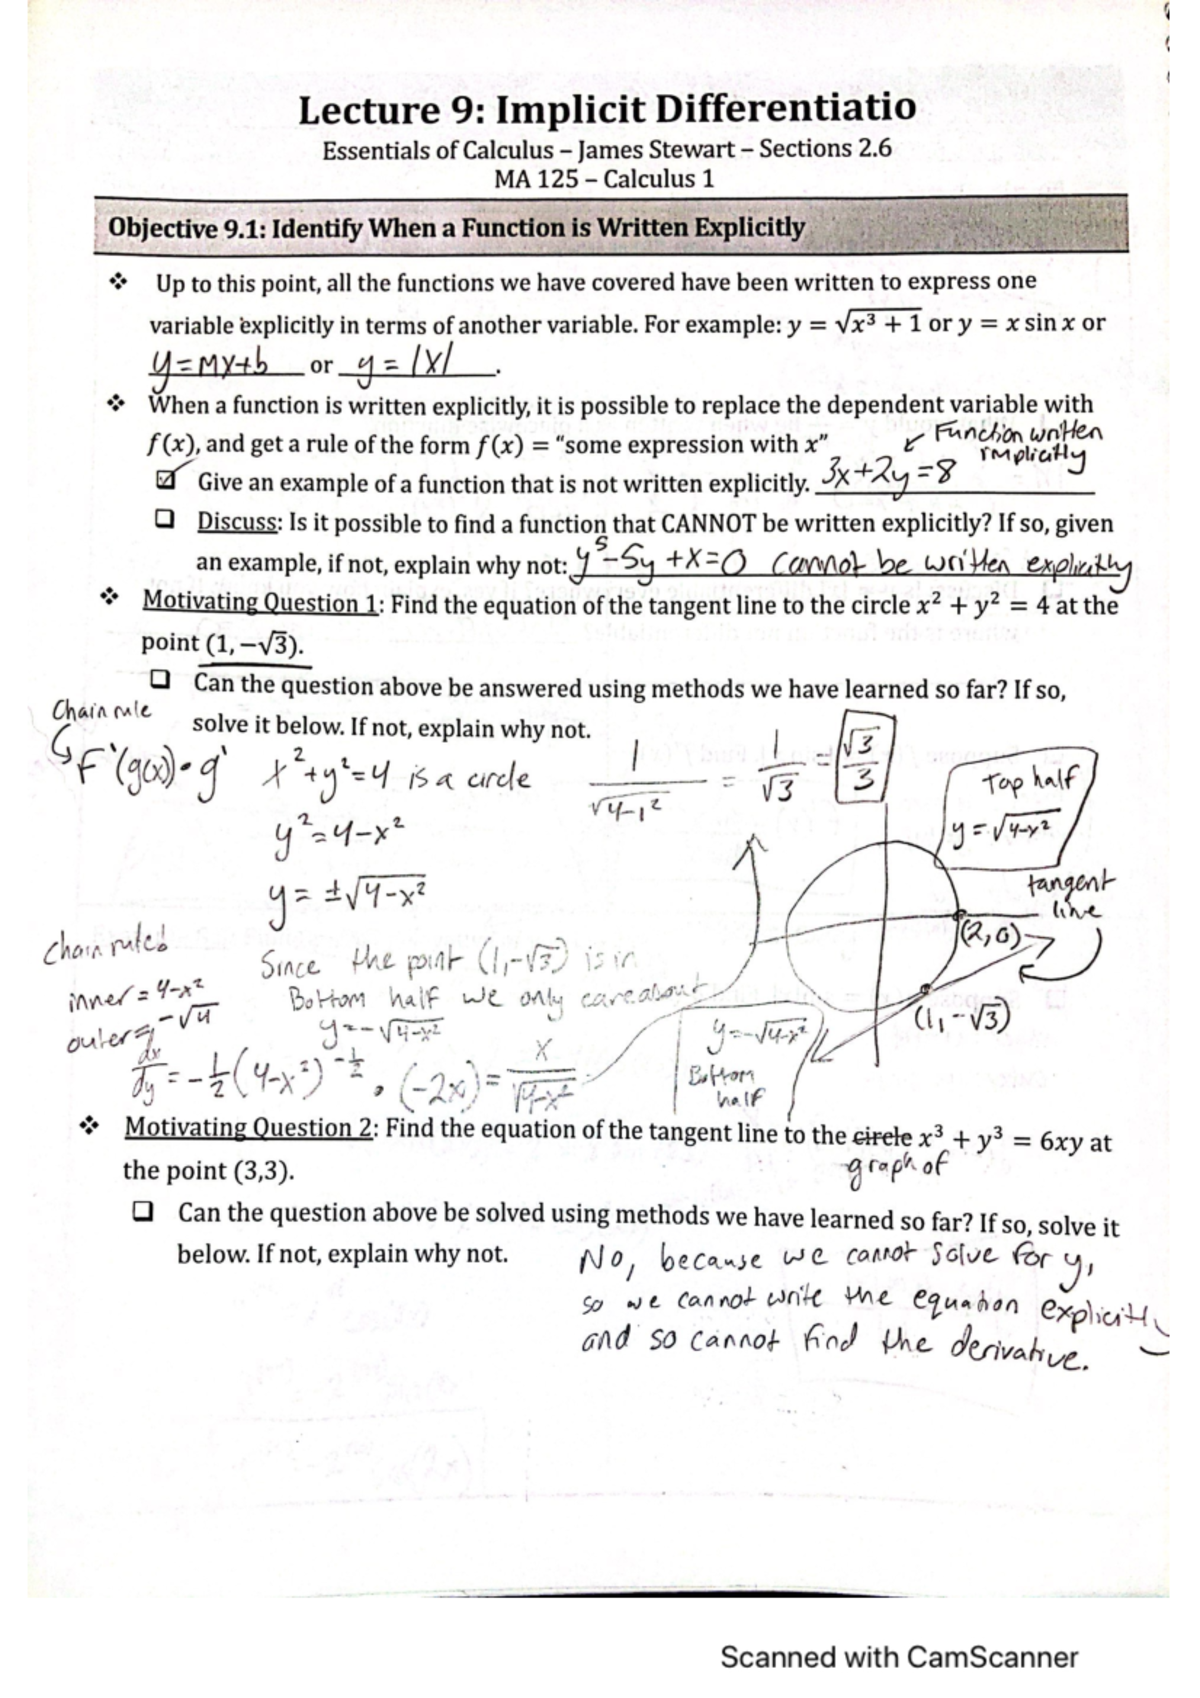 Lecture 9: Implicit Differentiatio
Essentials of Calculus – James Stewart – Sections 2.6
MA 125 – Calculus 1
Objective 9.1: Identify When a Function is Written Explicitly
❖ Up to this point, all the functions we have covered have been written to express one
variable explicitly in terms of another variable. For example: y = √(x³ + 1) or y = x sin x or
y=mx+b or y = |x| .
❖ When a function is written explicitly, it is possible to replace the dependent variable with
f(x), and get a rule of the form f(x) = “some expression with x”
↙ Function written
implicitly
☑ Give an example of a function that is not written explicitly. 3x+2y=8
❑ Discuss: Is it possible to find a function that CANNOT be written explicitly? If so, given
an example, if not, explain why not: y⁵-5y+x=0 cannot be written explicitly
❖ Motivating Question 1: Find the equation of the tangent line to the circle x² + y² = 4 at the
point (1, −√3).
❑ Can the question above be answered using methods we have learned so far? If so,
solve it below. If not, explain why not.
Chain rule
F'(g(x))•g'
x²+y²=4 is a circle
1/√(4-1²) = 1/√3 = √3/3
y²=4-x²
y=±√(4-x²)
Top half
y=√(4-x²)
tangent
line
(2,0)
(1,-√3)
Chain rule
inner=4-x²
outer= -√u
Since the point (1,-√3) is in
Bottom half we only care about
y=-√(4-x²)
y=-√(4-x²)
Bottom
half
dx/dy = -1/2(4-x²)^(-1/2) • (-2x) = x/√(4-x²)
❖ Motivating Question 2: Find the equation of the tangent line to the circle x³ + y³ = 6xy at
graph of
the point (3,3).
❑ Can the question above be solved using methods we have learned so far? If so, solve it
below. If not, explain why not.
No, because we cannot solve for y,
so we cannot write the equation explicitly
and so cannot find the derivative.
Scanned with CamScanner